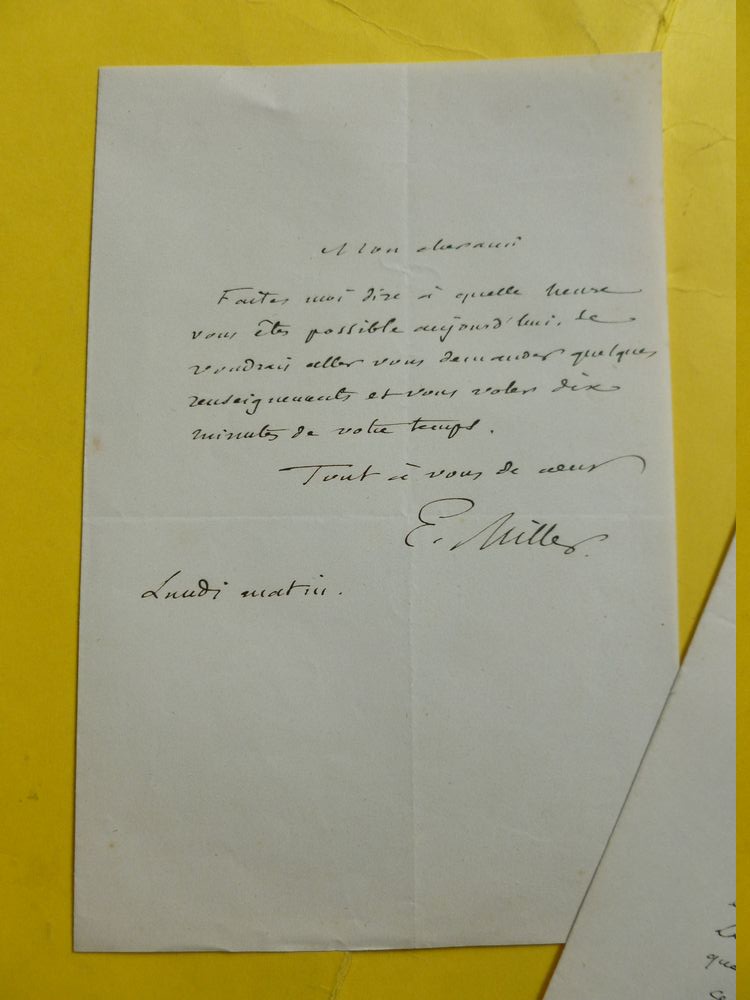 Mon cher ami
Faites moi dire à quelle heure
vous êtes possible aujourd'hui. Je
voudrais aller vous demander quelques
renseignements et vous voler dix
minutes de votre temps.
Tout à vous de cœur
E. Miller.
Lundi matin.
que
ce